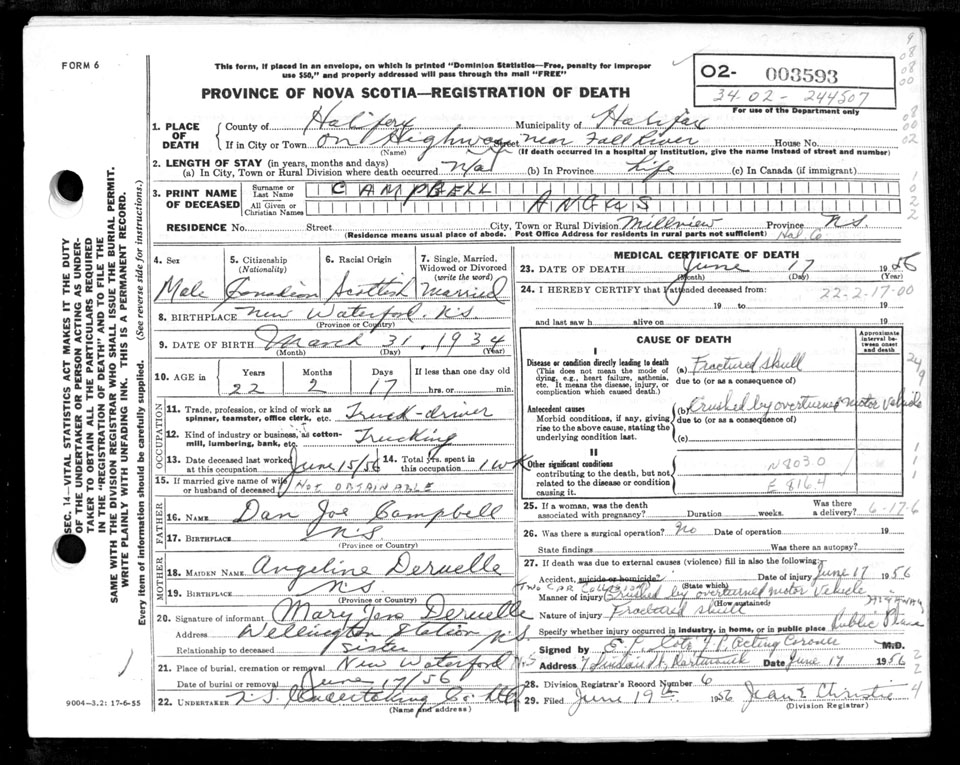 FORM 6
This form, if placed in an envelope, on which is printed "Dominion Statistics—Free, penalty for improper
use $50," and properly addressed will pass through the mail "FREE"
PROVINCE OF NOVA SCOTIA—REGISTRATION OF DEATH
O2- 003593
34-02-244507
For use of the Department only
1. PLACE OF DEATH
County of Halifax Municipality of Halifax
If in City or Town on Highway Street near Fall River House No.
(Name) (If death occurred in a hospital or institution, give the name instead of street and number)
2. LENGTH OF STAY (in years, months and days)
(a) In City, Town or Rural Division where death occurred (b) In Province Life (c) In Canada (if immigrant)
3. PRINT NAME OF DECEASED
Surname or Last Name CAMPBELL
All Given or Christian Names ANGUS
RESIDENCE No. Street City, Town or Rural Division Millview Province N.S.
(Residence means usual place of abode. Post Office Address for residents in rural parts not sufficient) Hal. Co
SEC. 14—VITAL STATISTICS ACT MAKES IT THE DUTY
OF THE UNDERTAKER OR PERSON ACTING AS UNDER-
TAKER TO OBTAIN ALL THE PARTICULARS REQUIRED
IN THE "REGISTRATION OF DEATH" AND TO FILE THE
SAME WITH THE DIVISION REGISTRAR WHO SHALL ISSUE THE BURIAL PERMIT.
WRITE PLAINLY WITH UNFADING INK. THIS IS A PERMANENT RECORD.
Every item of information should be carefully supplied. (See reverse side for instructions.)
4. Sex Male
5. Citizenship (Nationality) Canadian
6. Racial Origin Scottish
7. Single, Married, Widowed or Divorced (write the word) Married
8. BIRTHPLACE New Waterford. N.S.
(Province or Country)
9. DATE OF BIRTH March 31, 1934
(Month) (Day) (Year)
10. AGE in Years Months Days If less than one day old
22 2 17 hrs. or min.
OCCUPATION
11. Trade, profession, or kind of work as spinner, teamster, office clerk, etc. Truck-driver
12. Kind of industry or business, as cotton-mill, lumbering, bank, etc. Trucking
13. Date deceased last worked at this occupation June 15/56
14. Total yrs. spent in this occupation 1 wk
15. If married give name of wife or husband of deceased NOT OBTAINABLE
FATHER
16. NAME Dan Joe Campbell
17. BIRTHPLACE N.S.
(Province or Country)
MOTHER
18. MAIDEN NAME Angeline Deruelle
19. BIRTHPLACE N.S.
(Province or Country)
20. Signature of informant Mary Deruelle
Address Wellington Station N.S.
Relationship to deceased Sister
21. Place of burial, cremation or removal New Waterford N.S
Date of burial or removal June 17/56
22. UNDERTAKER N.S. Undertaking Co. Ltd
(Name and address)
9004—3.2: 17-6-55
MEDICAL CERTIFICATE OF DEATH
23. DATE OF DEATH June 17 1956
(Month) (Day) (Year)
24. I HEREBY CERTIFY that I attended deceased from:
22-2-17-00
19 to 19
and last saw h alive on 19
CAUSE OF DEATH
Approximate interval between onset and death
I
Disease or condition directly leading to death
(This does not mean the mode of dying, e.g., heart failure, asthenia, etc. It means the disease, injury, or complication which caused death.)
(a) Fractured skull
due to (or as a consequence of)
Antecedent causes
Morbid conditions, if any, giving rise to the above cause, stating the underlying condition last.
(b) Crushed by overturned motor vehicle
due to (or as a consequence of)
(c)
II
Other significant conditions
contributing to the death, but not related to the disease or condition causing it.
N803.0
E 816.4
25. If a woman, was the death associated with pregnancy? Duration weeks. Was there a delivery? 6-17-6
26. Was there a surgical operation? no Date of operation 19
State findings Was there an autopsy?
27. If death was due to external causes (violence) fill in also the following:
Accident, suicide or homicide? (State which) Date of injury June 17 1956
TWO CAR COLLISION
Manner of injury Crushed by overturned motor vehicle
(How sustained)
HIGHWAY
Nature of injury Fractured skull
Specify whether injury occurred in industry, in home, or in public place Public Place
Signed by J.P. Acting Coroner M.D.
Address Date June 17 1956
28. Division Registrar's Record Number 6
29. Filed June 19th 1956 Jean E Christie
(Division Registrar)